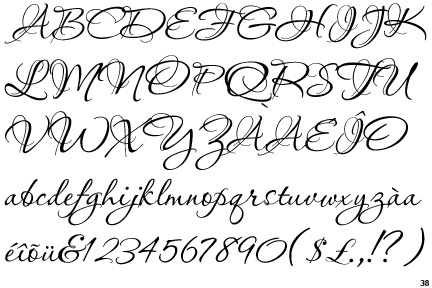 ABCDEFGHIJK
LMNOPQRSTU
VWXYZÀÅÉÎÕ
abcdefghijklmnopqrstuvwxyzàå
éîõü&1234567890($£.,!?)
38